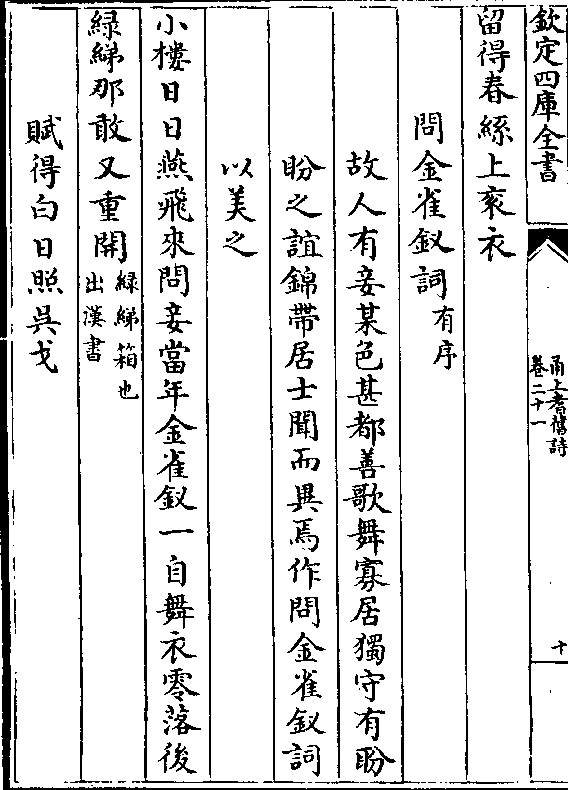 欽定四庫全書
甬上耆舊詩
卷二十一
十
留得春絲上衮衣
問金雀釵詞有序
故人有妾某色甚都善歌舞寡居獨守有盼
盼之誼錦帶居士聞而異焉作問金雀釵詞
以美之
小樓日日燕飛來問妾當年金雀釵一自舞衣零落後
緑綈那敢又重開緑綈箱也
出漢書
賦得白日照吳戈